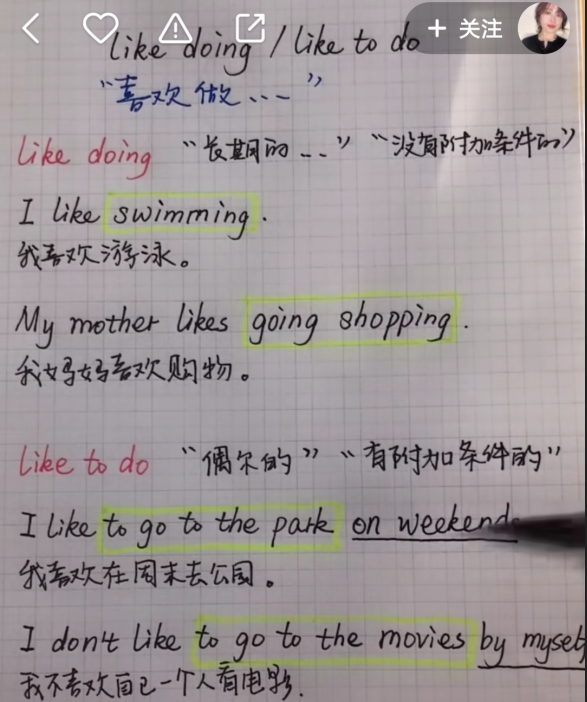 + 关注
like doing / like to do
“喜欢做...”
like doing “长期的...” “没有附加条件的”
I like swimming.
我喜欢游泳。
My mother likes going shopping.
我妈妈喜欢购物。
like to do “偶尔的” “有附加条件的”
I like to go to the park on weekends
我喜欢在周末去公园。
I don't like to go to the movies by myself
我不喜欢自己一个人看电影.